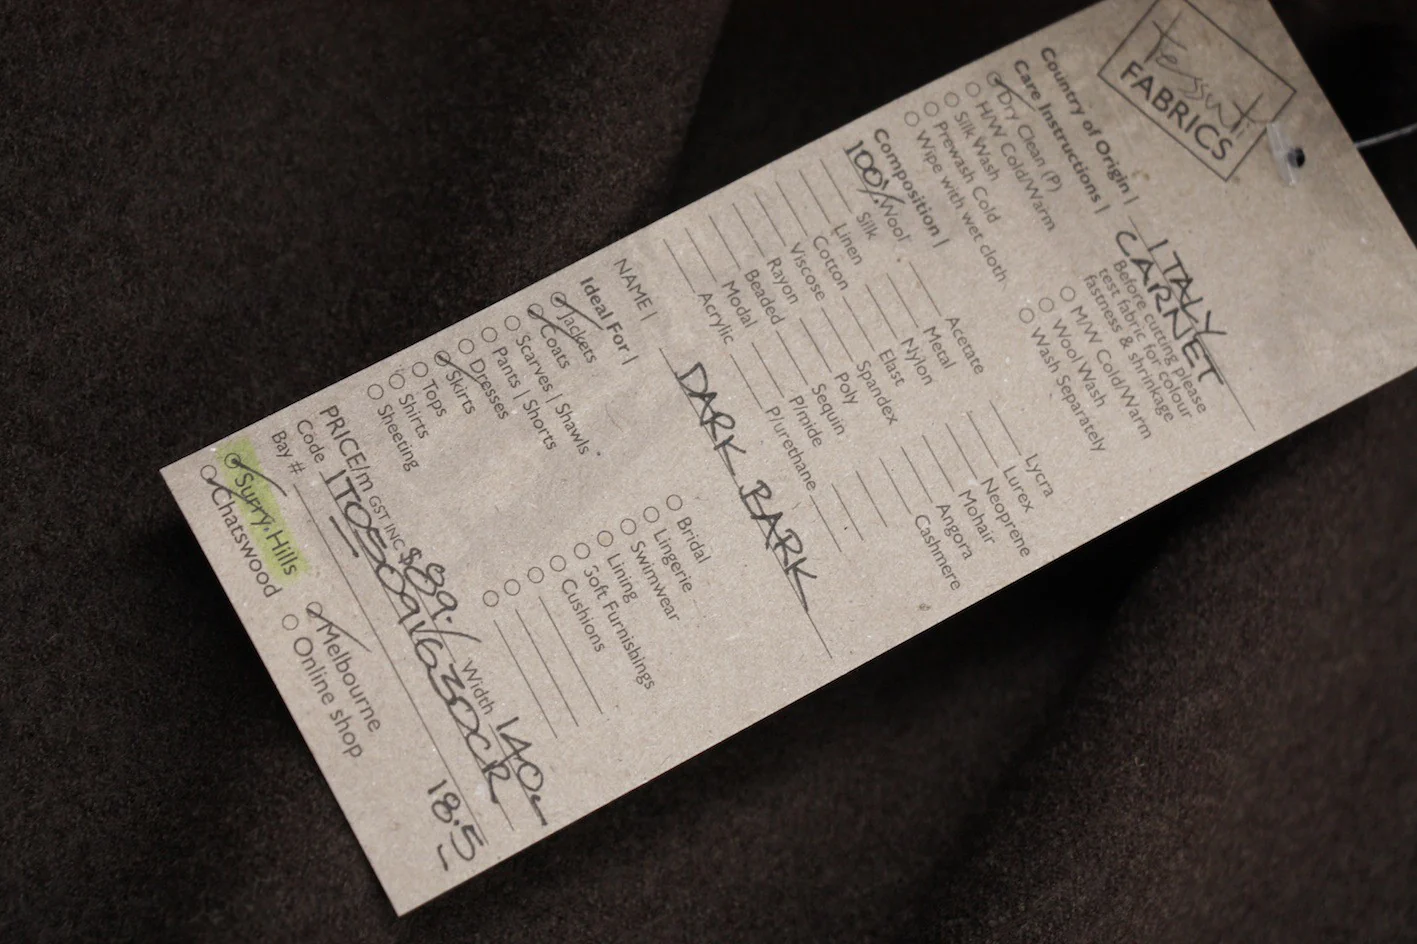 tessuti
FABRICS
Country of Origin | ITALY
CARNET
Care Instructions | Before cutting please
test fabric for colour
fastness & shrinkage
Dry Clean (P)
H/W Cold/Warm M/W Cold/Warm
Silk Wash Wool Wash
Prewash Cold Wash Separately
Wipe with wet cloth
Composition |
100% Wool Acetate Lycra
Silk Metal Lurex
Linen Nylon Neoprene
Cotton Elast Mohair
Viscose Spandex Angora
Rayon Poly Cashmere
Beaded Sequin
Modal P/mide
Acrylic P/urethane
NAME | DARK BARK
Ideal For |
Jackets Bridal
Coats Lingerie
Scarves | Shawls Swimwear
Pants | Shorts Lining
Dresses Soft Furnishings
Skirts Cushions
Tops
Shirts
Sheeting
PRICE/m GST INC $89./ Width 140
Code
Bay # 18.5
Surry Hills Melbourne
Chatswood Online shop